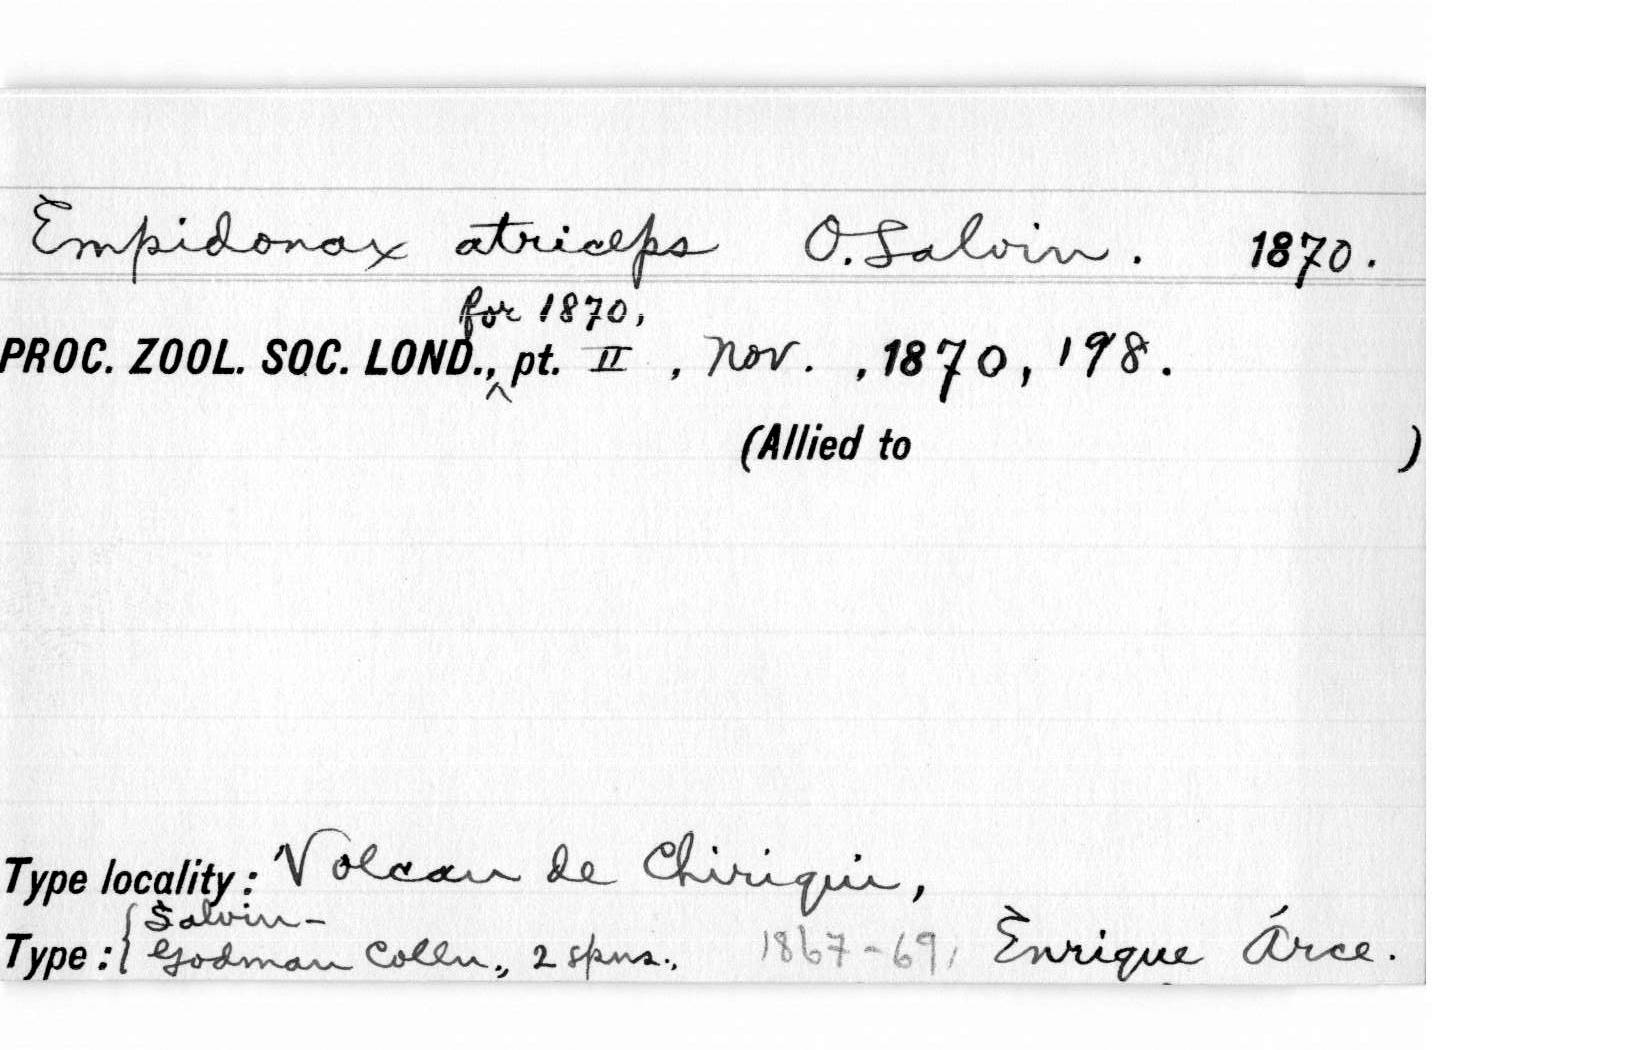 Empidonax atriceps O. Salvin. 1870.
for 1870,
PROC. ZOOL. SOC. LOND., pt. II, Nov., 1870, 198.
(Allied to )
Type locality: Volcan de Chiriqui,
Salvin-
Type: Godman Colln., 2 spns., 1867-69, Enrique Arce.